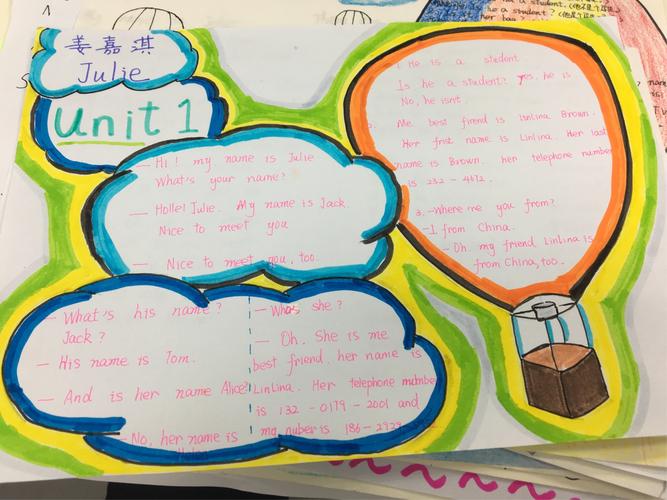 姜嘉淇
Julie
Unit 1
— Hi! my name is Julie
What's your name?
— Holle! Julie. My name is Jack.
Nice to meet you
— Nice to meet you, too.
— What's his name?
Jack?
— His name is Tom.
— And is her name Alice?
— No, her name is
Helen
— Who's she?
— Oh. She is me
best friend. her name is
LinLina. Her telephone number
is 132-0179-2001 and
my nuber is 186-2929-
1. He is a student.
Is he a student? Yes, he is.
No, he isn't.
Me best firend is LinLina Brown.
Her frist name is LinLina. Her last
name is Brown. her telephone number
is 232-4672.
3. -Where are you from?
-I from China.
-Oh. my friend LinLina is
from China, too.
a student.
he a student?
her bag?